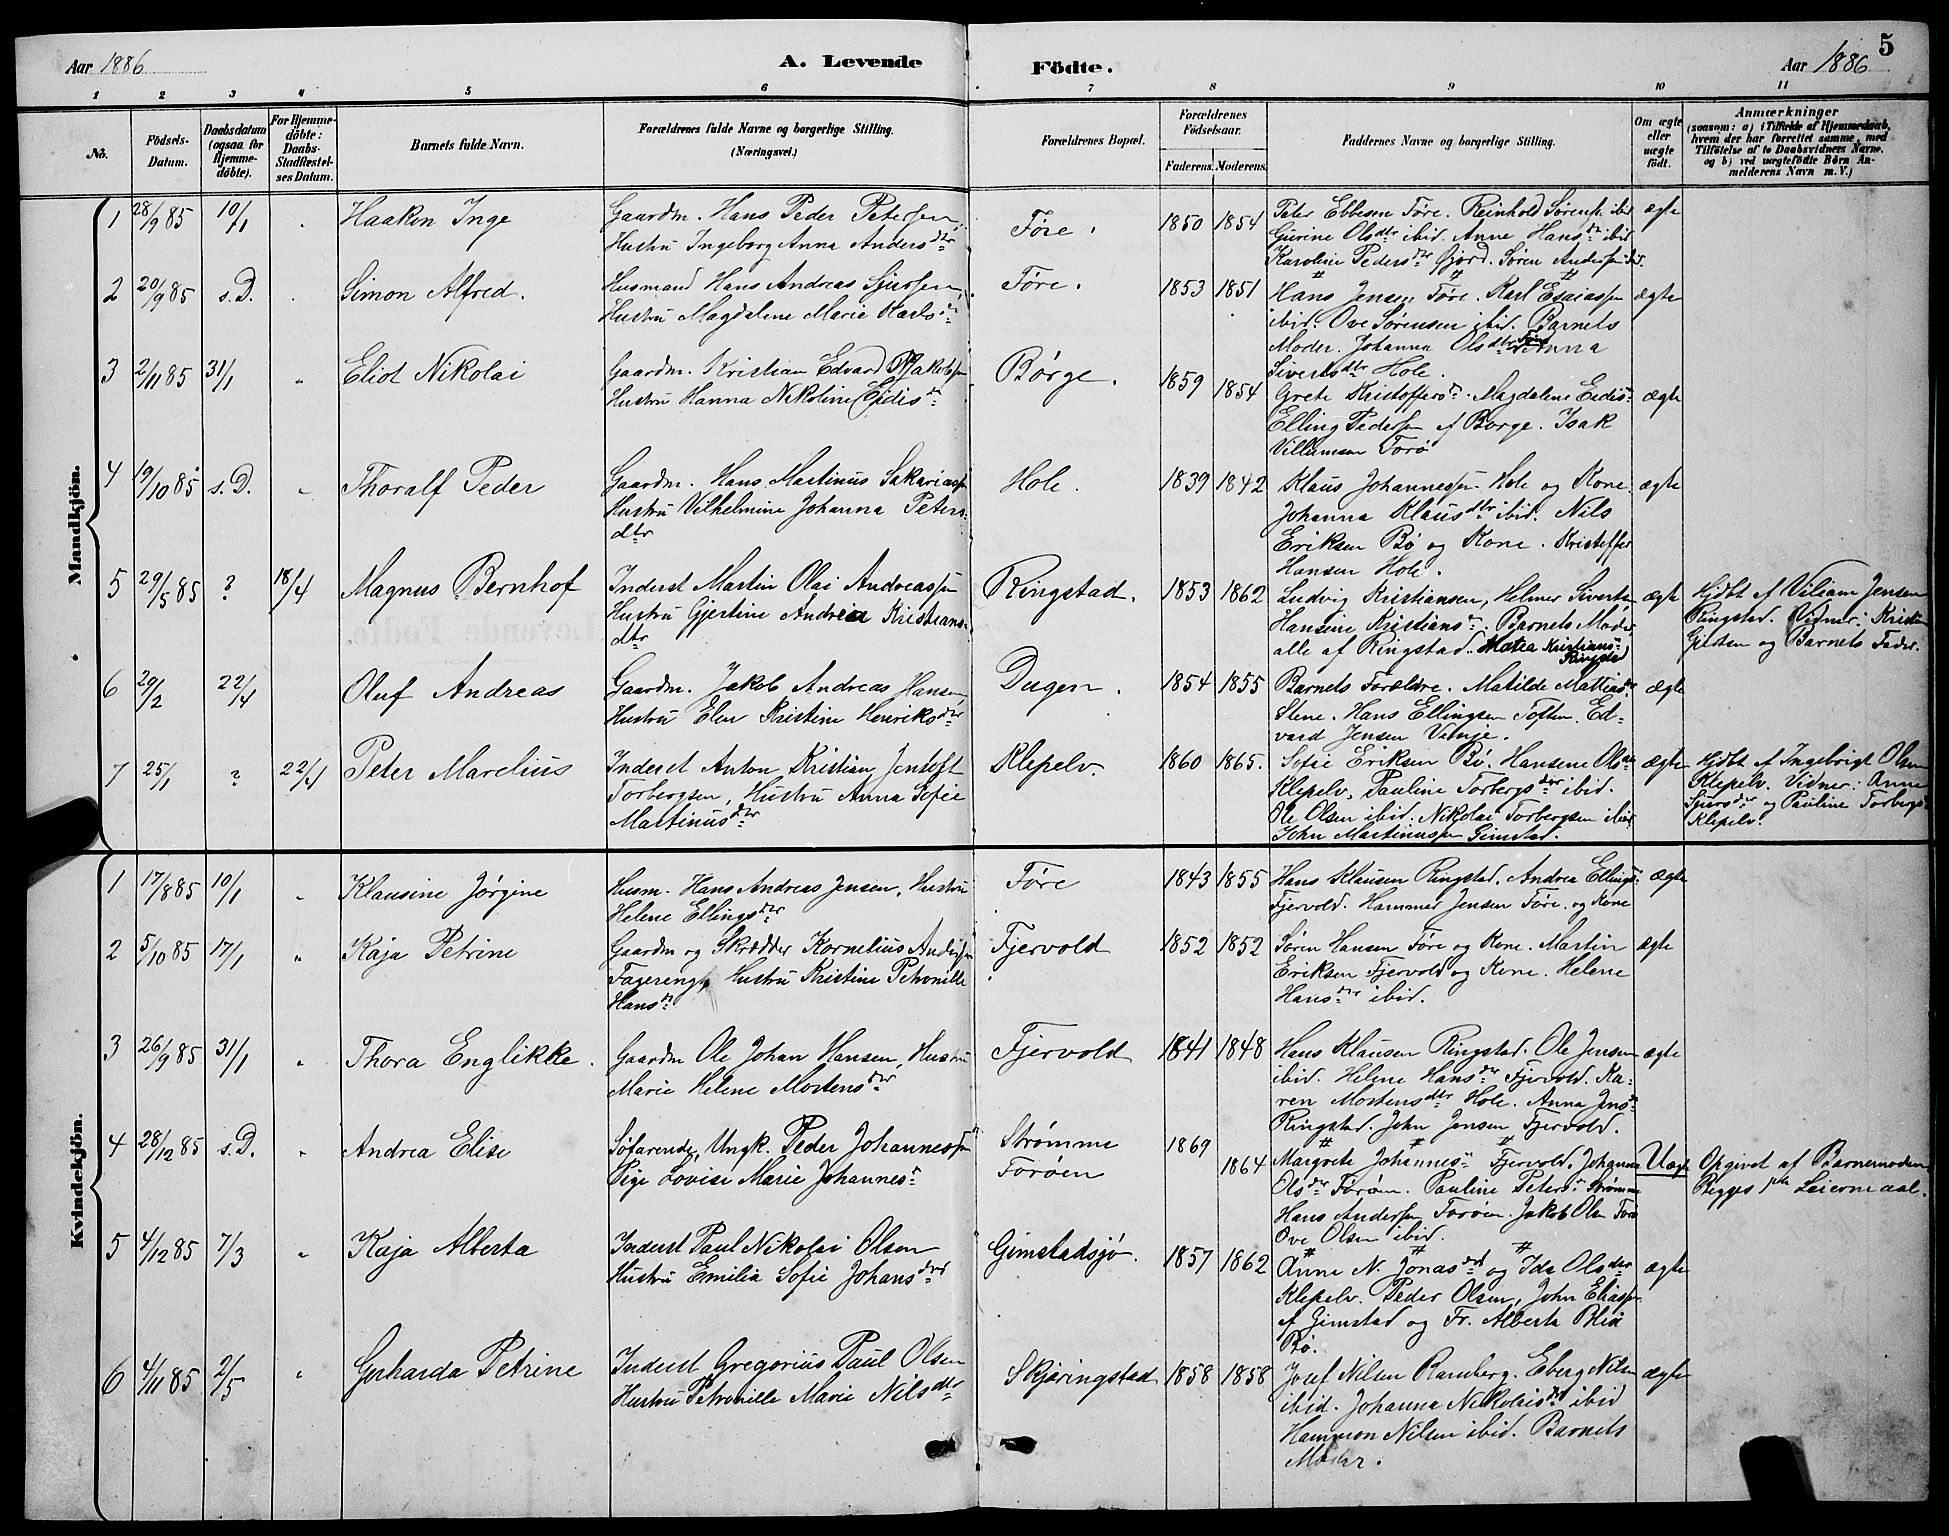 Aar 1886
A. Levende
Födte.
5
Aar 1886
1 2 3 4 5 6 7 8 9 10 11
No.
Födsels-Datum.
Daabsdatum (ogsaa for Hjemme-döbte).
For Hjemme-döbte: Daabs-Stadfæstel-ses Datum.
Barnets fulde Navn.
Forældrenes fulde Navne og borgerlige Stilling.
(Næringsvei.)
Forældrenes Bopæl.
Forældrenes Födselsaar.
Faderens. Moderens.
Faddernes Navne og borgerlige Stilling.
Om ægte eller uægte födt.
Anmærkninger
(saasom: a) i Tilfælde af Hjemmedaab, hvem der har forrettet samme, med Tilföielse af to Daabsvidners Navne, og b) ved uægtefödte Börn An-melderens Navn m. V.)
Mandkjön.
1 28/9 85 10/1 " Haakon Inge
Gaardm. Hans Peder Petersen,
Hustru Ingeborg Anna Andersdtr
Føre.
1850 1854
Peter Ebbesen Føre. Reinhold Sørens. ibid
Gurine Olsdtr ibid. Anne Hansd. ibid
Karoline Pedersdtr Gjord. Søren Anders. ibid.
ægte
2 20/9 85 s.D. " Simon Alfred.
Husmand Hans Andreas Sjursen,
Hustru Magdalene Marie Karlsd.
Føre.
1853 1851
Hans Jensen Føre. Karl Esaiassen
ibid. Ove Sørensen ibid. Barnets
Moder. Johanna Olsdtr Anna
Sivertsdtr Hole.
ægte
3 2/11 85 31/1 " Eliot Nikolai
Gaardm. Kristian Edvard Jakobsen
Hustru Hanna Nikoline Eidisd.
Børge.
1859 1854
Grete Kristoffersd. Magdalene Eidisd.
Elling Pedersen af Børge. Isak
Villumsen Forø
ægte
4 19/10 85 s.D. " Thoralf Peder
Gaardm. Hans Martinus Sakariassen
Hustru Vilhelmine Johanna Peters-
dtr
Hole.
1839 1842
Klaus Johannessen Hole og Kone.
Johanna Klausdtr ibid. Nils
Eriksen Bø og Kone. Kristoffer
Hansen Hole.
ægte
5 29/5 85 ? 18/4 Magnus Bernhof
Inderst Martin Olai Andreassen
Hustru Gjertine Andrea Kristians-
dtr
Ringstad.
1853 1862
Ludvig Kristiansen, Helmer Sivertsen
Hansine Kristiansd. Barnets Moder
alle af Ringstad. Matea Kristiansd.
Ringstad
ægte
Hjdbt af Viliam Jensen
Ringstad. Vidner: Kristin
Gjertsen og Barnets Fader.
6 20/2 22/4 Oluf Andreas
Gaardm. Jakob Andreas Hansen
Hustru Elen Kristine Henriksdtr
Dugen.
1854 1855
Barnets Forældre. Matilde Mattiasd.
Stene. Hans Ellingsen Toften. Ed-
vard Jensen Vinje.
ægte
7 25/1 ? 22/4 Peter Marelius
Inderst Anton Kristian Jentoft
Torbergsen, Hustru Anna Sofie
Martinusdtr
Klepelv.
1860 1865.
Sofie Eriksen Bø. Hansene Olsdtr
Klepelv, Pauline Torbergsdtr ibid.
Ole Olsen ibid. Nikolai Torbergsen ibid.
John Martinussen Gimstad.
ægte
Hjdbt af Ingebrigt Olsen
Klepelv. Vidner: Anne
Sjursdtr og Pauline Torbergsd.
Klepelv.
Kvindekjön.
1 17/8 85 10/1 " Klausine Jørgine
Husm. Hans Andreas Jensen, Hustru
Helene Ellingsdtr
Føre
1843 1855
Hans Klausen Ringstad. Andrea Ellingsd.
Fjervold. Hammer Jensen Føre og Kone
ægte
2 5/10 85 17/1 " Kaja Petrine
Gaardm og Skrædder Kornelius Andersen
Fagereng, Hustru Kristine Petronille
Hansd.
Fjervold
1852 1852
Søren Hansen Føre og Kone. Martin
Eriksen Fjervold og Kone. Helene
Hansdtr ibid.
ægte
3 26/9 85 31/1 " Thora Englikke.
Gaardm Ole Johan Hansen, Hustru
Marie Helene Mortensdtr
Fjervold
1841 1848
Hans Klausen Ringstad. Ole Jensen
ibid. Helene Hansdtr Fjervold. Ka-
ren Mortensdtr Hole. Anna Jensd.
Ringstad. John Jensen Fjervold.
ægte
4 28/12 85 s.D. " Andrea Elise
Søfarende, Ungk. Peder Johannessen
Pige Lovise Marie Johannesd.
Strømme
Forøen
1869
1864
Margrete Johannesd. Fjervold. Johanna
Olsdtr Forøen. Pauline Petersd. Strømme
Hans Andersen Forøen. Jakob Olsen Forø
Ove Olsen ibid.
Uægte
Opgivet af Barnemoderen
Begges 1ste Leiermaal.
5 4/12 85 7/3 " Kaja Alberta
Inderst Paul Nikolai Olsen
Hustru Emilia Sofie Johansdtr
Gimstadsjø.
1857 1862
Anne N. Jonasdtr og Ida Olsdtr
Klepelv. Peder Olsen, John Eliassen
af Gimstad og Fr. Alberta Blix
Bø.
ægte
6 4/11 85 2/5 " Gerharda Petrine
Inderst Gregorius Paul Olsen
Hustru Petronille Marie Nilsdtr
Skjæringstad
1858 1858
Josef Nilsen Ramberg. Eberg Nilsen
ibid. Johanna Nikolaisdtr ibid
Hammon Nilsen ibid. Barnets
Moder.
ægte